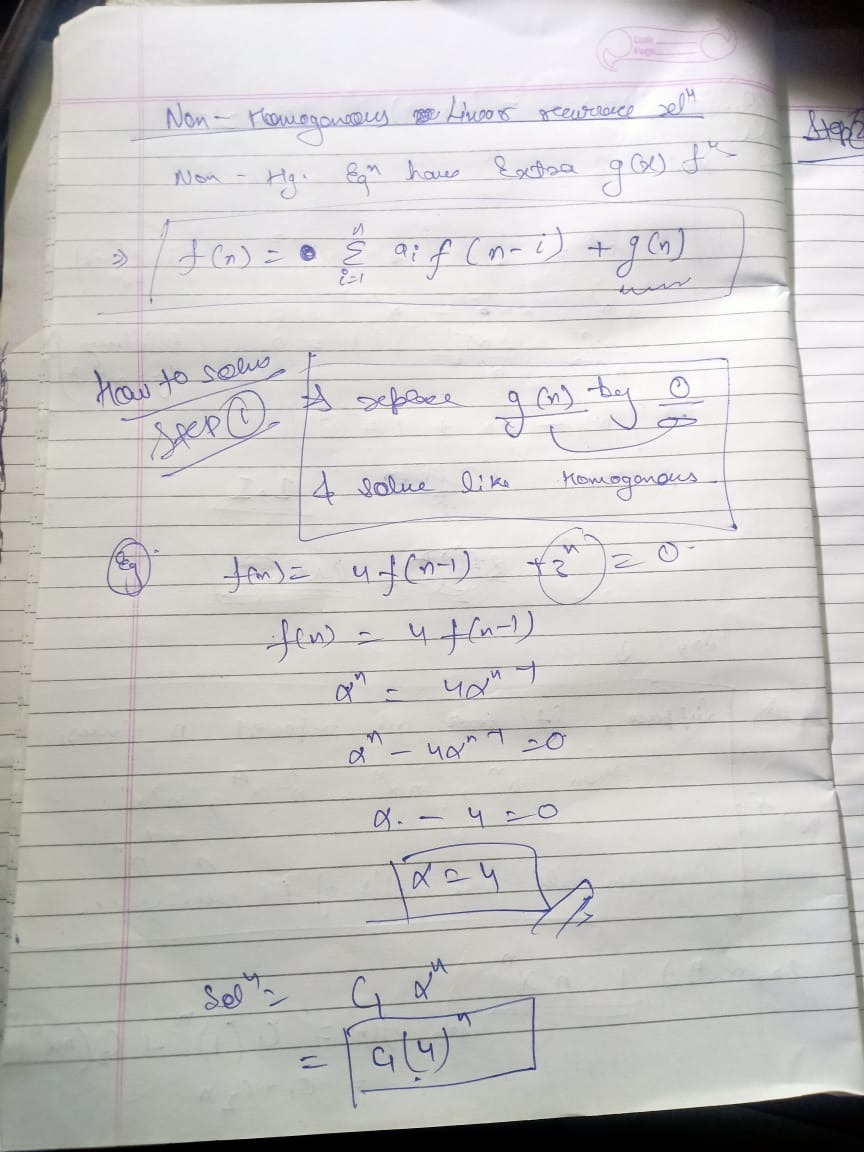 Date
Page
Non - Homogeneous Linear recurrence relⁿ
Step
Non - Hg. Eqⁿ have Extra g(x) fⁿ
⇒ f(n) = n Σ i=1 aᵢ f (n-i) + g(n)
How to solve
Step ①
replace g(n) by 0
& solve like Homogenous
Eg f(n) = 4 f(n-1) + 3ⁿ = 0
f(n) = 4 f(n-1)
αⁿ = 4αⁿ⁻¹
αⁿ - 4αⁿ⁻¹ = 0
α - 4 = 0
α = 4
Solⁿ = C₁ αⁿ
= C₁(4)ⁿ